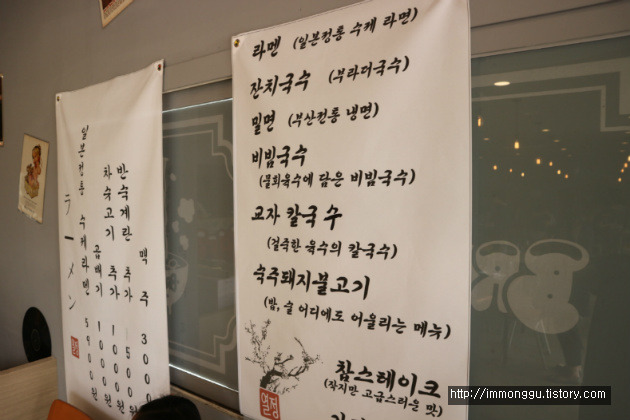 라멘 (일본전통 수케 라면)
잔치국수 (부라더국수)
밀면 (부산전통 냉면)
비빔국수
(물회육수에 담은 비빔국수)
교자 칼국수
(걸죽한 육수의 칼국수)
숙주돼지불고기
(밥, 술 어디에도 어울리는 메뉴)
참스테이크
(작지만 고급스러운 맛)
ラーメン
일본전통 수케라멘 5500원
곱빼기 1000원
차슈고기 추가 1000원
반숙계란 추가 500원
맥주 3000
http://immonggu.tistory.com